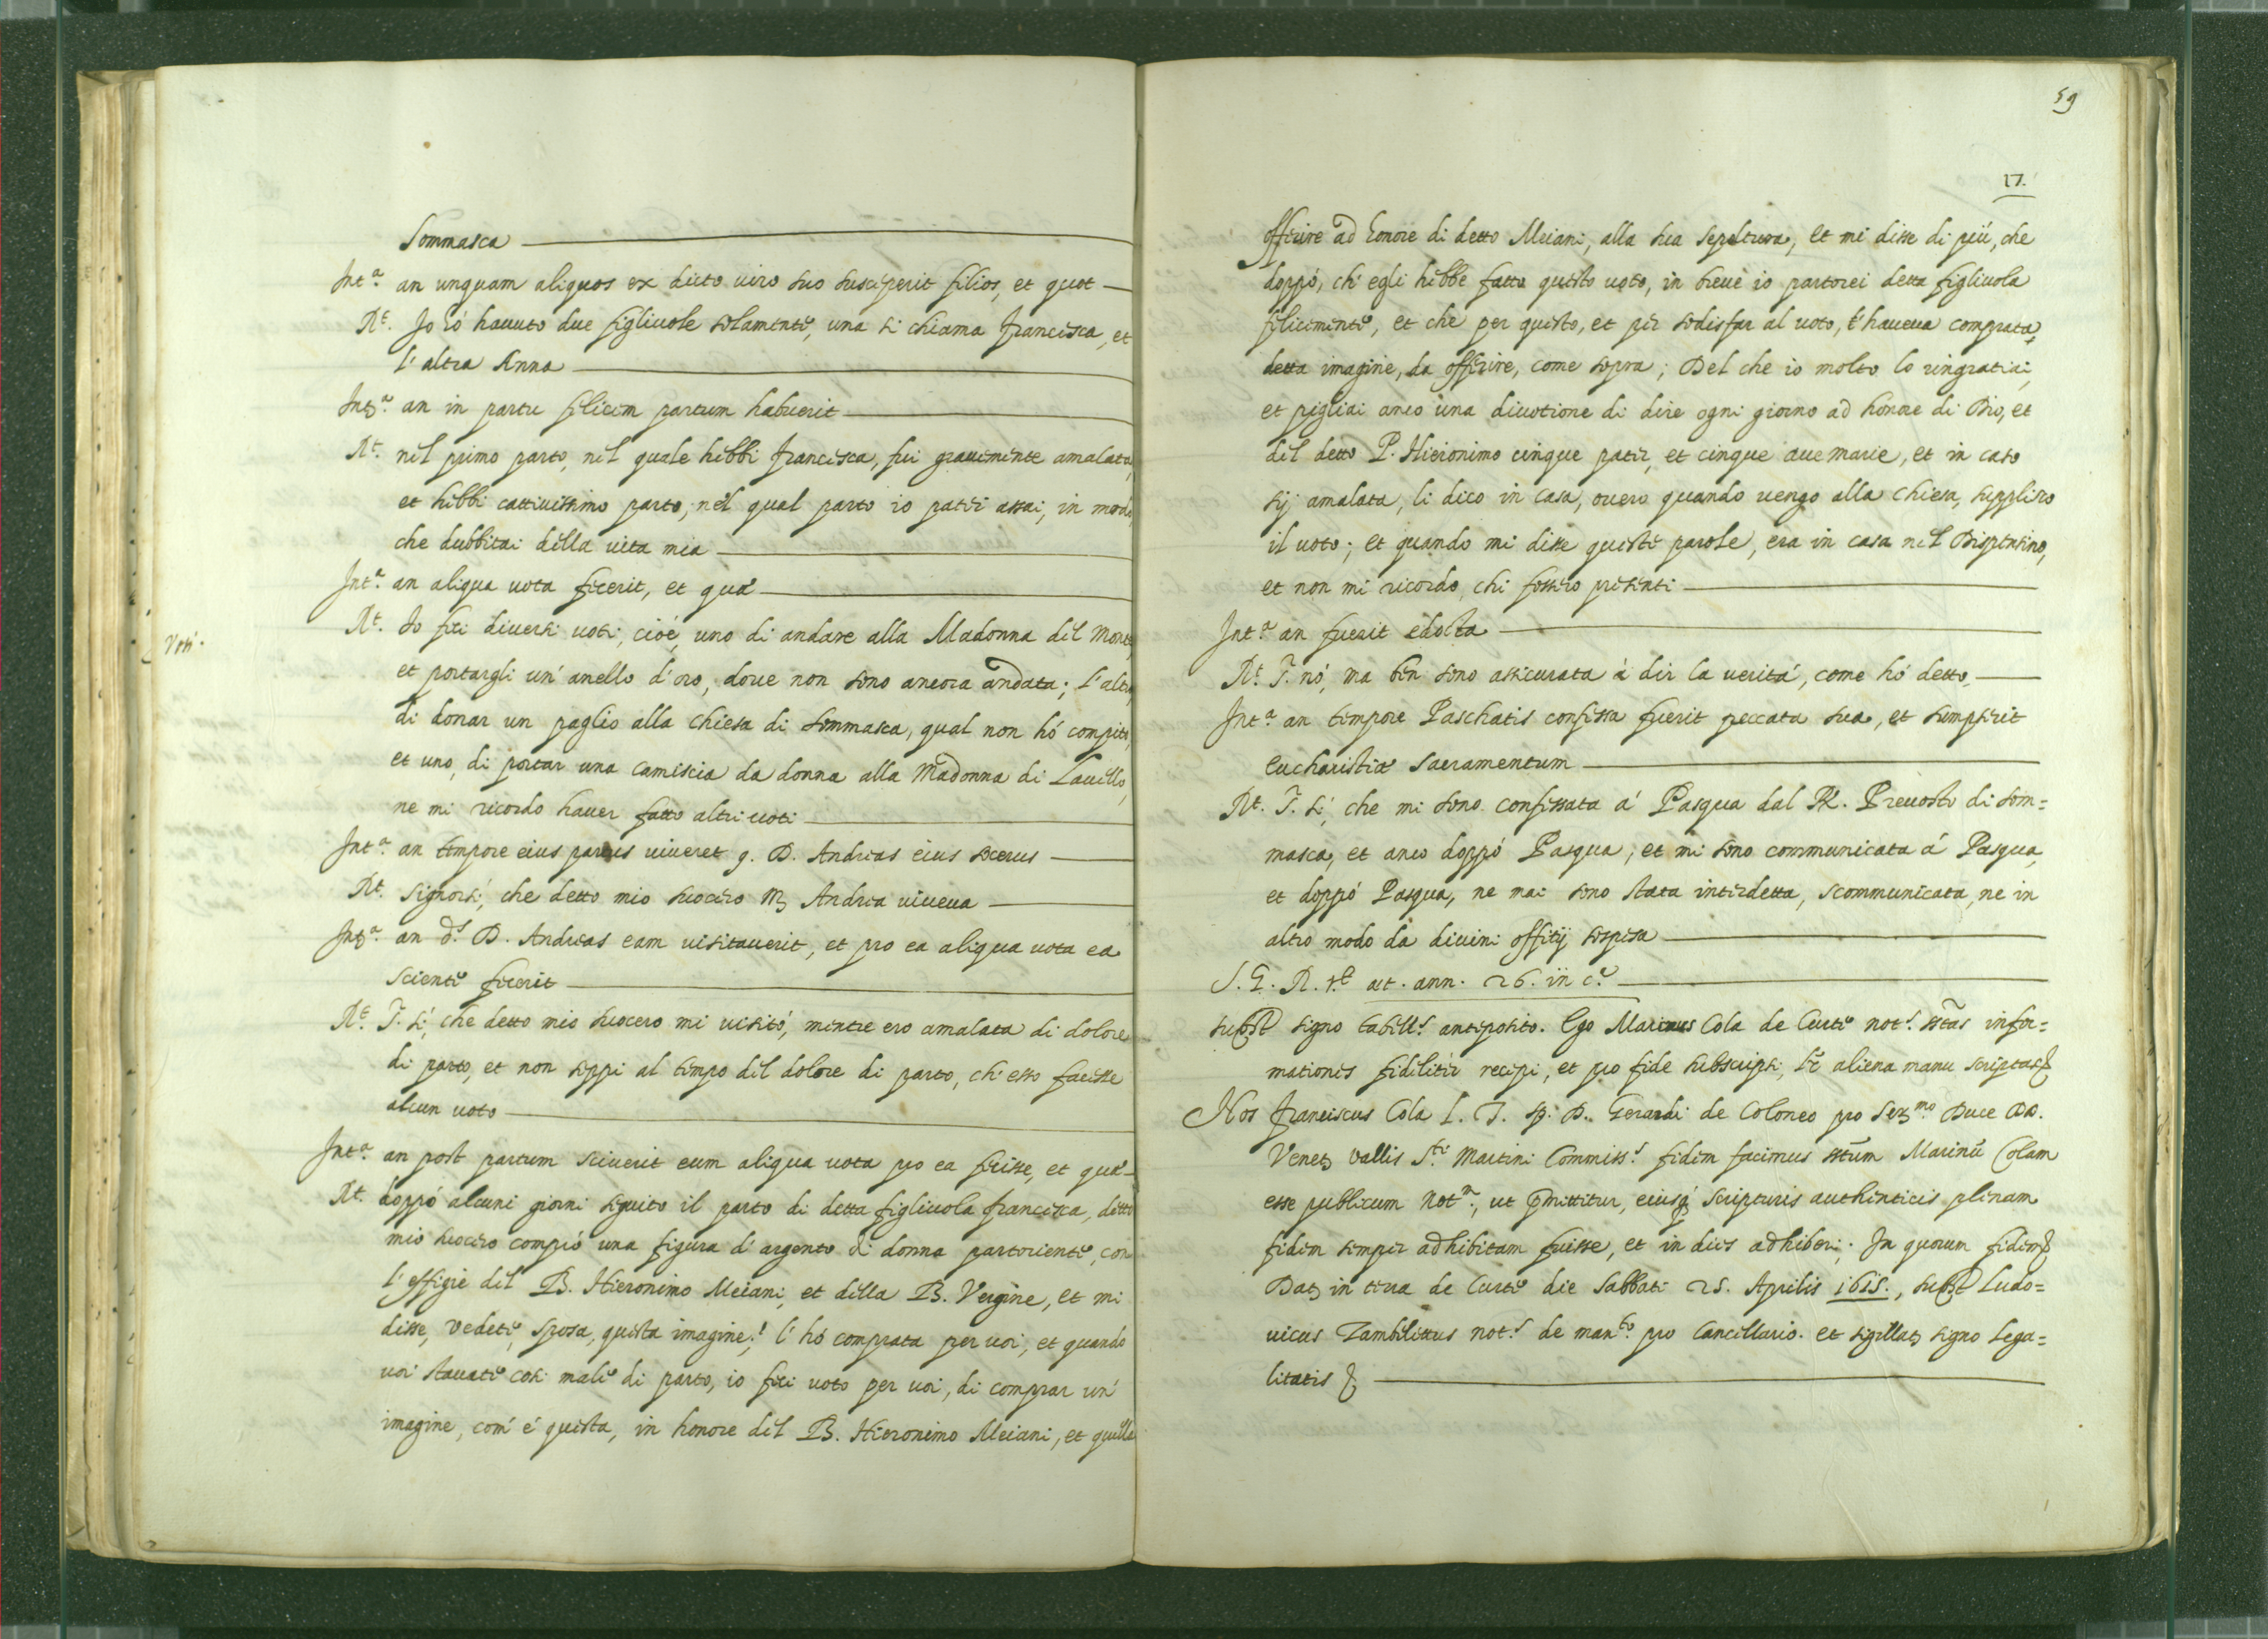 Sommasca
Int.ª an unquam aliquos ex dicto viro suo susceperit filios, et quot
R.t Io hó hauuto due figliuole solamente, una si chiama Francesca, et
l'altra Anna
Int.ª an in partu felicem partum habuerit
R.t nel primo parto, nel quale hebbi Francesca, fui grauemente amalata,
et hebbi cattiuissimo parto, nel qual parto io patei assai, in modo,
che dubbitai della uita mia
Int.ª an aliqua uota fecerit, et quæ
Voti.
R.t Io feci diuersi uoti, cioè, uno di andare alla Madonna del Monte,
et portargli un' anello d'oro, doue non sono ancora andata; l'altro,
di donar un paglio alla chiesa di Sommasca, qual non hó compito,
et uno, di portar una camiscia da donna alla Madonna di Lauello,
ne mi ricordo hauer fatto altri uoti
Int.ª an tempore eius partus uiueret q. D. Andreas eius socerus
R.t Signorsi, che detto mio suocero m Andrea uiueua
Int.ª an d.s D. Andreas eam uisitauerit, et pro ea aliqua uota ea
sciente fecerit
R.t I. si, che detto mio suocero mi uisitó, mentre ero amalata di dolore
di parto, et non seppi al tempo del dolore di parto, ch'esso facesse
alcun uoto
Int.ª an post partum sciuerit eum aliqua uota pro ea fecisse, et quæ
R.t doppó alcuni giorni seguito il parto di detta figliuola Francesca, detto
mio suocero compró una figura d'argento di donna partoriente, con
l'effigie del B. Hieronimo Meiani, et della B. Vergine, et mi
disse, vedete, sposa, questa imagine! l'hó comprata per uoi, et quando
uoi stauate cosi male di parto, io feci uoto per uoi, di comprar un'
imagine, com'é questa, in honore del B. Hieronimo Meiani, et quella
59
17.
offerire ad honore di detto Meiani, alla sua sepoltura, et mi disse di piú, che
doppó, ch'egli hebbe fatto questo uoto, in breue io partorei detta figliuola
felicemente, et che per questo, et per sodisfar al uoto, l'haueua comprata,
detta imagine, da offerire, come sopra; Del che io molto lo ringratiai,
et pigliai anco una diuotione di dire ogni giorno ad honore di Dio, et
del detto P. Hieronimo cinque pater, et cinque aue marie, et in caso
sij amalata, li dico in casa, ouero quando uengo alla chiesa, supplisco
il uoto; et quando mi disse queste parole, era in casa nel Dispensino,
et non mi ricordo, chi fossero presenti
Int.ª an fuerit edocta
R.t I. nó, ma ben sono assicurata á dir la ueritá, come hó detto
Int.ª an tempore Paschatis confessa fuerit peccata sua, et sumpserit
Eucharistiæ Sacramentum
R.t I. si, che mi sono confessata á Pasqua dal R. Preuosto di Som=
masca, et anco doppó Pasqua, et mi sono communicata á Pasqua,
et doppó Pasqua, ne mai sono stata interdetta, scommunicata, ne in
altro modo da diuini offitij sospesa
S. G. R. æt. ann. 26. in c.ª
signo antiposito. Ego Marinus Cola de Curte not.s infor=
mationes fideliter recepi, et pro fide subscripsi, aliena manu scriptas
Nos Franciscus Cola L. T. sp. D. Gerardi de Coloneo pro Ser.mo Duce DD.
Venet Vallis S.ti Martini Commiss.s fidem facimus Marinū Colam
esse publicum Not.m, ut pmittitur, eiusq Scripturis authenticis plenam
fidem semper adhibitam fuisse, et in dies adhiberi. In quorum fidem
Dat in terra de Curte die Sabbati 25. Aprilis 1615., Ludo=
uicus Zambelittus not.s de man.to pro Cancellario. et sigillat signo Lega=
litatis